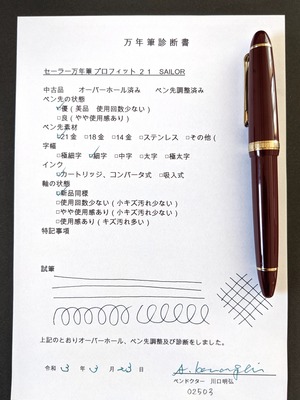 万年筆診断書
セーラー万年筆プロフィット21 SAILOR
中古品 オーバーホール済み ペン先調整済み
ペン先の状態
☑優(美品 使用回数少ない)
□良(やや使用感あり)
ペン先素材
☑21金 □18金 □14金 □ステンレス □その他(
字幅
□極細字 ☑細字 □中字 □太字 □極太字
インク
☑カートリッジ、コンバータ式 □吸入式
軸の状態
☑新品同様
□使用回数少ない(小キズ汚れ少ない)
□やや使用感あり(小キズ汚れ少ない)
□使用感あり(キズ汚れ多い)
特記事項
試筆
上記のとおりオーバーホール、ペン先調整及び診断をしました。
令和 3 年 3 月 23 日
ペンドクター 川口明弘
02503